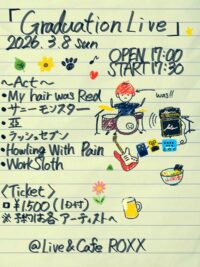 「Graduation Live」
2026. 3.8 Sun
OPEN 17:00
START 17:30
～Act～
•My hair was Red
•サニーモンスター
•亞
•ラッシュセブン
•Howling With Pain
•WorkSloth
was!!
〈Ticket〉
¥1500 (1D付)
※予約は各アーティストへ
@Live&Cafe ROXX